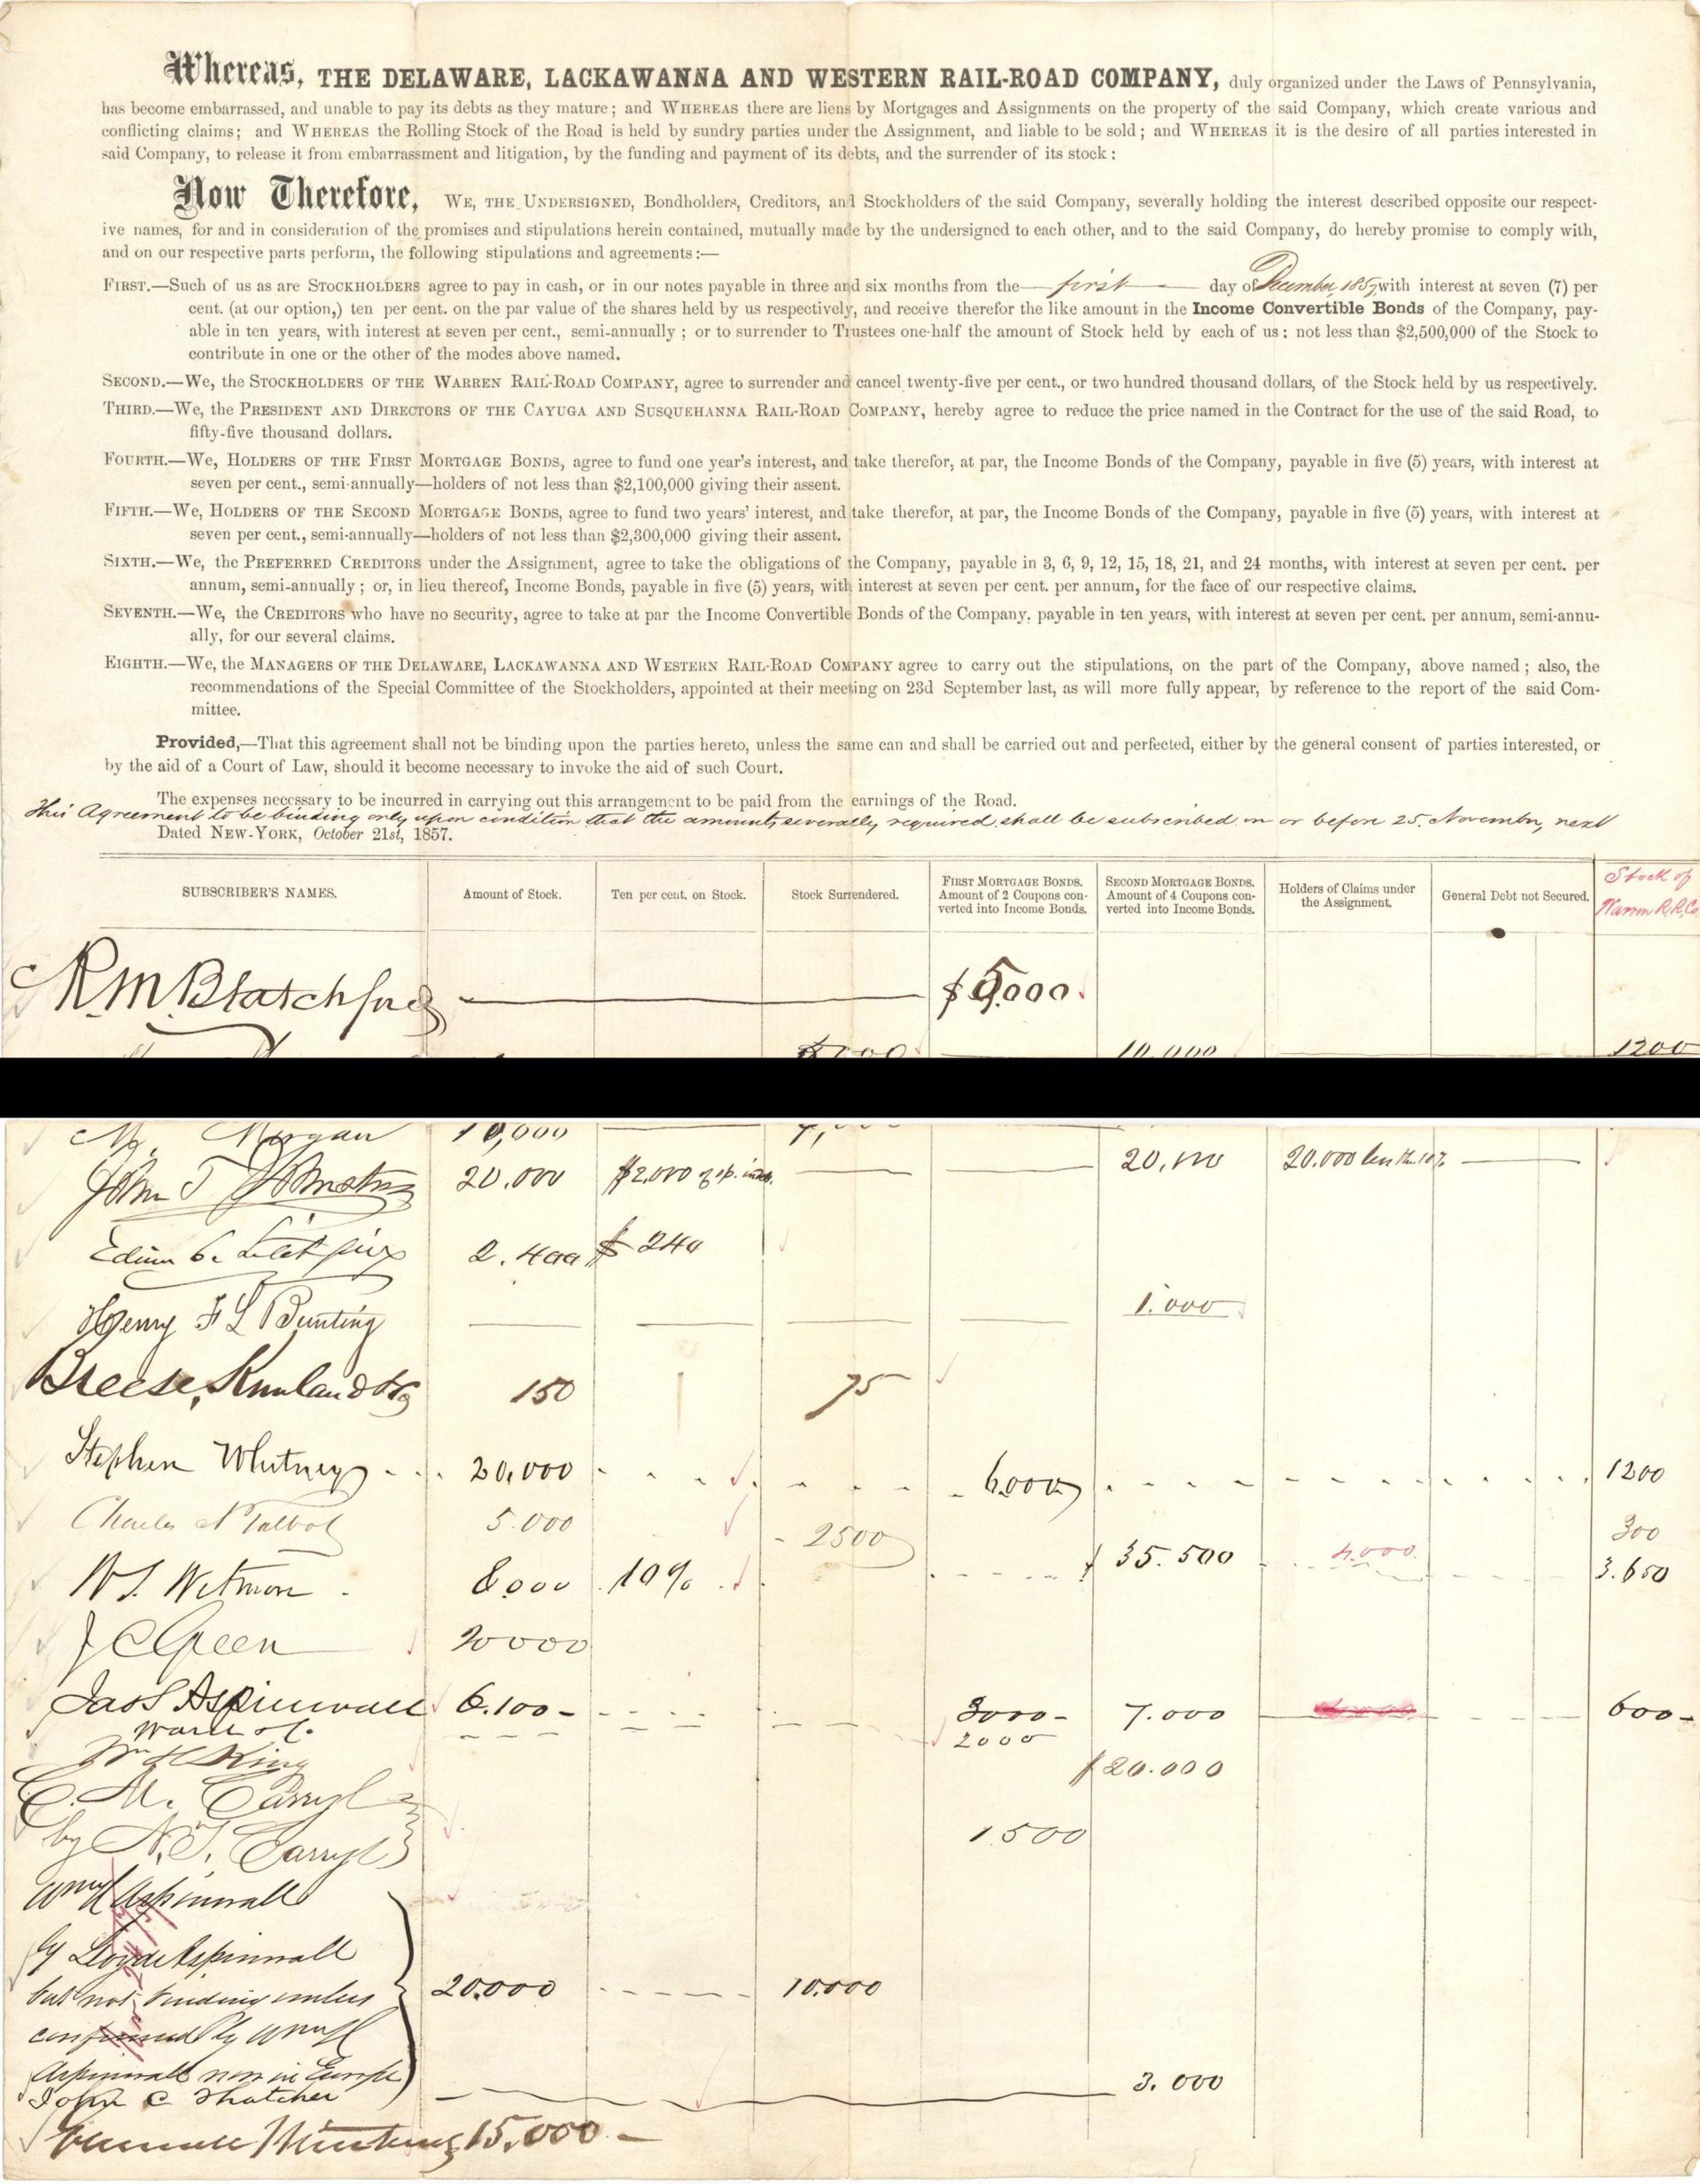 Whereas, THE DELAWARE, LACKAWANNA AND WESTERN RAIL-ROAD COMPANY, duly organized under the Laws of Pennsylvania,
has become embarrassed, and unable to pay its debts as they mature; and WHEREAS there are liens by Mortgages and Assignments on the property of the said Company, which create various and
conflicting claims; and WHEREAS the Rolling Stock of the Road is held by sundry parties under the Assignment, and liable to be sold; and WHEREAS it is the desire of all parties interested in
said Company, to release it from embarrassment and litigation, by the funding and payment of its debts, and the surrender of its stock:
Now Therefore, WE, THE UNDERSIGNED, Bondholders, Creditors, and Stockholders of the said Company, severally holding the interest described opposite our respect-
ive names, for and in consideration of the promises and stipulations herein contained, mutually made by the undersigned to each other, and to the said Company, do hereby promise to comply with,
and on our respective parts perform, the following stipulations and agreements:—
FIRST.—Such of us as are STOCKHOLDERS agree to pay in cash, or in our notes payable in three and six months from the first day of December, 1857, with interest at seven (7) per
cent. (at our option,) ten per cent. on the par value of the shares held by us respectively, and receive therefor the like amount in the Income Convertible Bonds of the Company, pay-
able in ten years, with interest at seven per cent., semi-annually; or to surrender to Trustees one-half the amount of Stock held by each of us: not less than $2,500,000 of the Stock to
contribute in one or the other of the modes above named.
SECOND.—We, the STOCKHOLDERS OF THE WARREN RAIL-ROAD COMPANY, agree to surrender and cancel twenty-five per cent., or two hundred thousand dollars, of the Stock held by us respectively.
THIRD.—We, the PRESIDENT AND DIRECTORS OF THE CAYUGA AND SUSQUEHANNA RAIL-ROAD COMPANY, hereby agree to reduce the price named in the Contract for the use of the said Road, to
fifty-five thousand dollars.
FOURTH.—We, HOLDERS OF THE FIRST MORTGAGE BONDS, agree to fund one year's interest, and take therefor, at par, the Income Bonds of the Company, payable in five (5) years, with interest at
seven per cent., semi-annually—holders of not less than $2,100,000 giving their assent.
FIFTH.—We, HOLDERS OF THE SECOND MORTGAGE BONDS, agree to fund two years' interest, and take therefor, at par, the Income Bonds of the Company, payable in five (5) years, with interest at
seven per cent., semi-annually—holders of not less than $2,300,000 giving their assent.
SIXTH.—We, the PREFERRED CREDITORS under the Assignment, agree to take the obligations of the Company, payable in 3, 6, 9, 12, 15, 18, 21, and 24 months, with interest at seven per cent. per
annum, semi-annually; or, in lieu thereof, Income Bonds, payable in five (5) years, with interest at seven per cent. per annum, for the face of our respective claims.
SEVENTH.—We, the CREDITORS who have no security, agree to take at par the Income Convertible Bonds of the Company, payable in ten years, with interest at seven per cent. per annum, semi-annu-
ally, for our several claims.
EIGHTH.—We, the MANAGERS OF THE DELAWARE, LACKAWANNA AND WESTERN RAIL-ROAD COMPANY agree to carry out the stipulations, on the part of the Company, above named; also, the
recommendations of the Special Committee of the Stockholders, appointed at their meeting on 23d September last, as will more fully appear, by reference to the report of the said Com-
mittee.
Provided,—That this agreement shall not be binding upon the parties hereto, unless the same can and shall be carried out and perfected, either by the general consent of parties interested, or
by the aid of a Court of Law, should it become necessary to invoke the aid of such Court.
The expenses necessary to be incurred in carrying out this arrangement to be paid from the earnings of the Road.
This Agreement to be binding only upon condition that the amounts severally required shall be subscribed on or before 25. November, next
Dated NEW-YORK, October 21st, 1857.
SUBSCRIBER'S NAMES. Amount of Stock. Ten per cent. on Stock. Stock Surrendered. FIRST MORTGAGE BONDS. Amount of 2 Coupons converted into Income Bonds. SECOND MORTGAGE BONDS. Amount of 4 Coupons converted into Income Bonds. Holders of Claims under the Assignment. General Debt not Secured. Stock of Warren R.R. Co.
R.M. Blatchford $5,000.
10,000 1200
M. Morgan 10,000
John T Johnston 20.000 $2,000 20,000 20.000 less
2.400 $240
Henry F L Bunting 1.000
Breese, Kneeland & Co 150 75
Stephen Whitney 20,000 6.000 1200
Charles N Talbot 5.000 2500 300
W. S. Wetmore 8,000 10% $35.500 4.000 3.650
J C Green 20000
Jas S Aspinwall 6.100 3000 7.000 600
Ward & Co. 2000
Wm H King $20.000
C. M. Carryl
by N. T. Carryl 1.500
Wm H Aspinwall
by Lloyd Aspinwall
but not binding unless 20.000 10.000
confirmed by Wm H
Aspinwall now in Europe
John C Thatcher 3.000
15,000